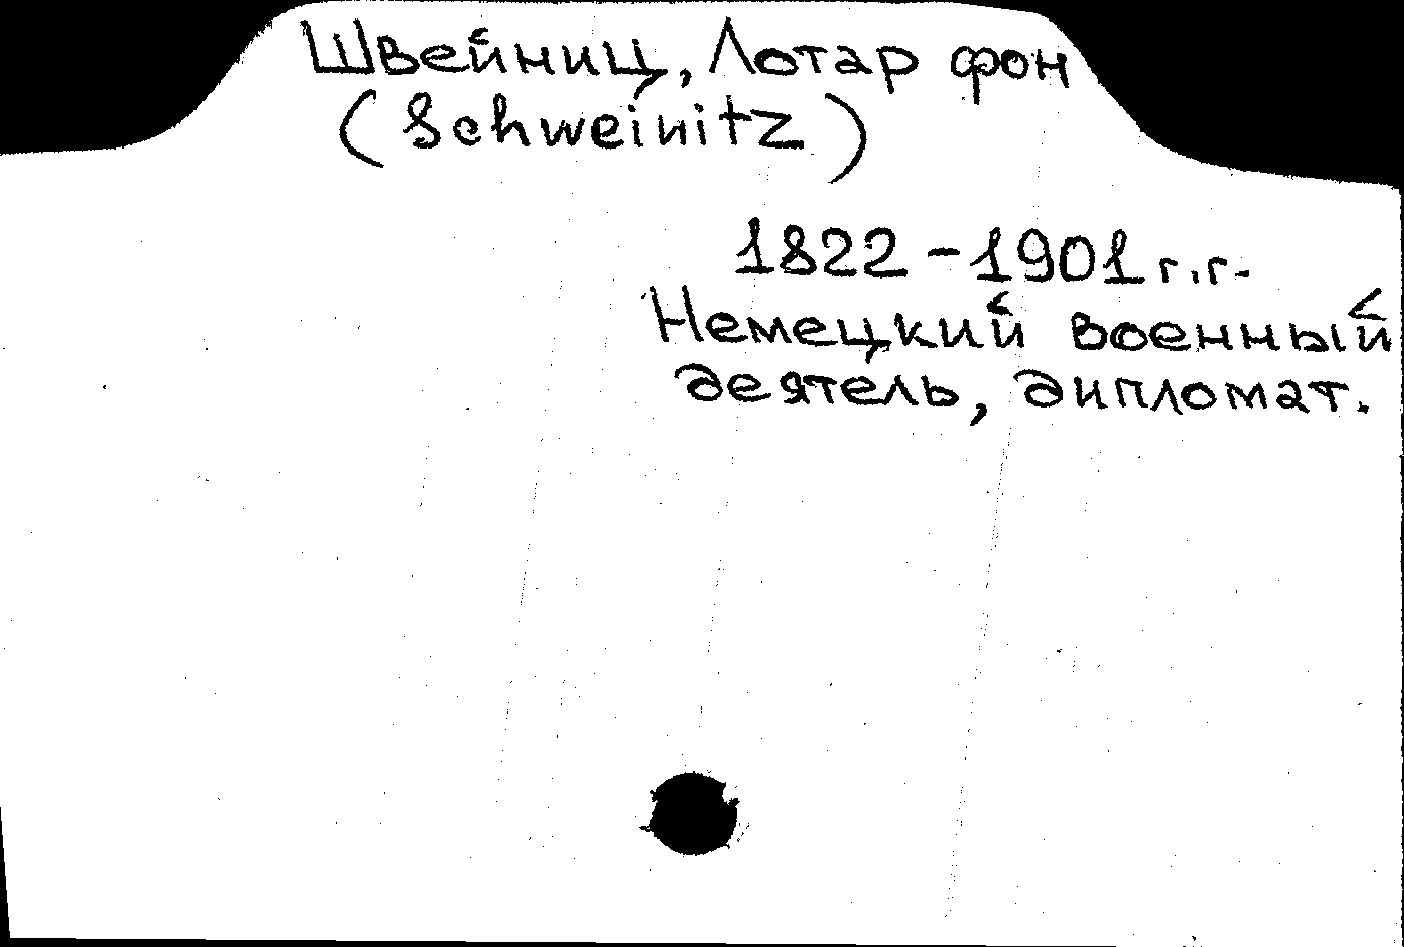 Швейниц, Лотар фон
(Schweinitz)
1822 - 1901 г.г.
Немецкий военный
деятель, дипломат.